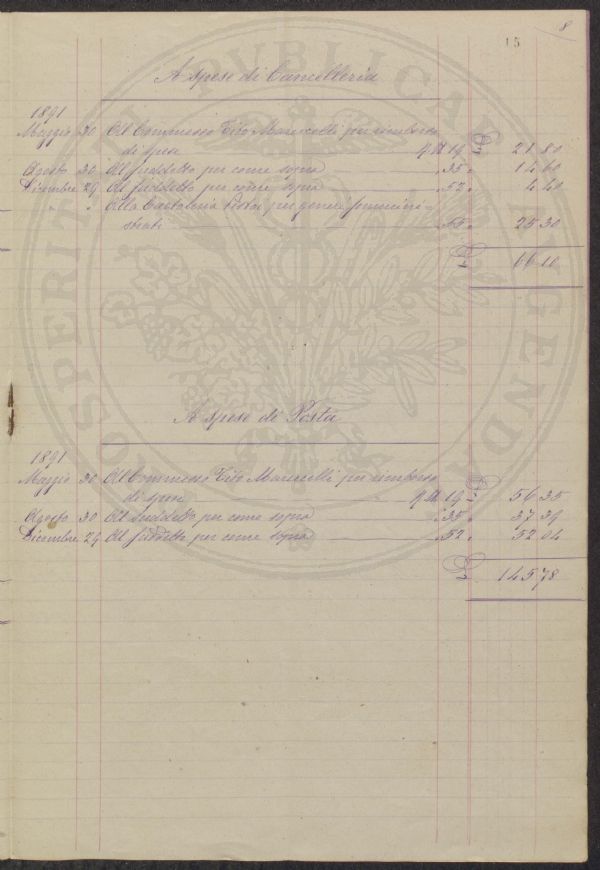 8
15
A spese di Cancelleria
1891
Maggio 30 Al Commesso Tito Marucelli per rimborso
di spese 9 M 19 £ 21 80
Agosto 30 Al suddetto per come sopra " 35 " 14 60
Dicembre 29 Al suddetto per come sopra " 52 " 4 40
" " Alla Cartoleria per generi sommini=
strati " 55 " 25 30
£ 66 10
A spese di Posta
1891
Maggio 30 Al Commesso Tito Marucelli per rimborso
di spese 9 M 19 £ 56 35
Agosto 30 Al suddetto per come sopra " 35 " 37 39
Dicembre 29 Al suddetto per come sopra " 52 " 52 04
£ 145 78
PROSPERITATI PUBLICAE AUGENDAE